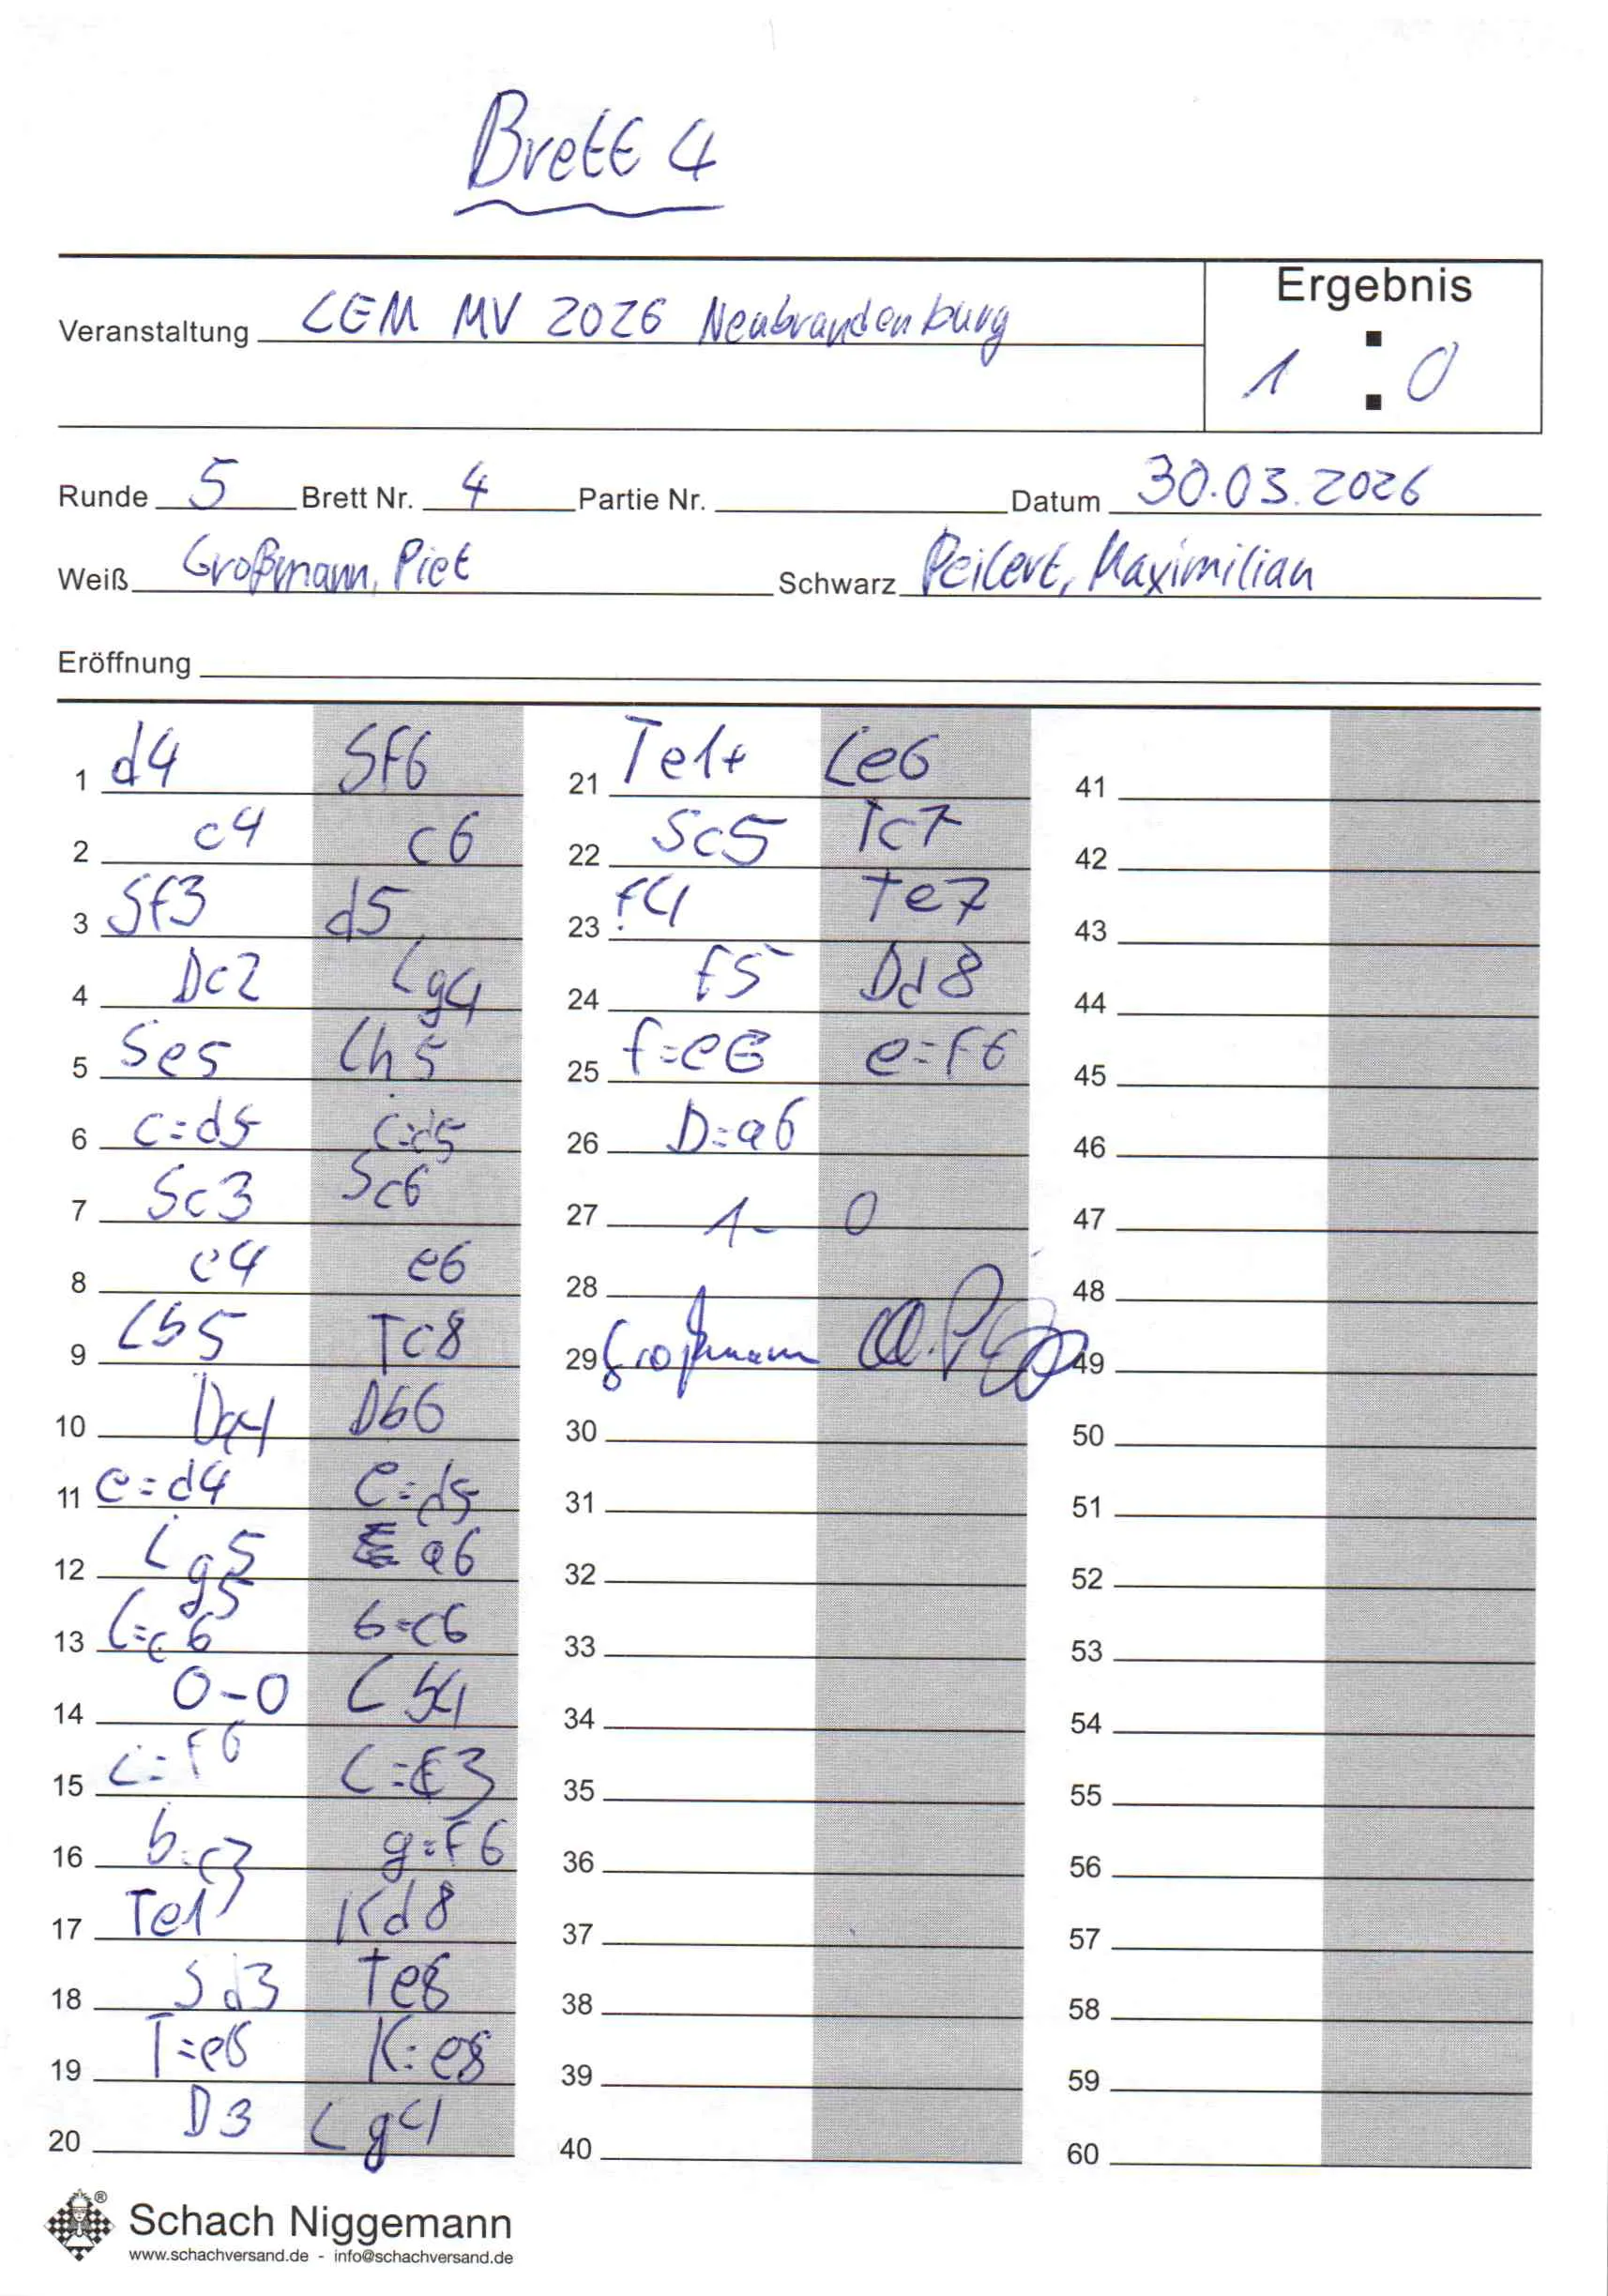 Brett 4
Ergebnis
Veranstaltung LEM MV 2026 Neubrandenburg
1 : 0
Runde 5 Brett Nr. 4 Partie Nr. Datum 30.03.2026
Weiß Großmann, Piet Schwarz Peilert, Maximilian
Eröffnung
1 d4 Sf6
2 c4 c6
3 Sf3 d5
4 Dc2 Lg4
5 Se5 Lh5
6 c=d5 c=d5
7 Sc3 Sc6
8 e4 e6
9 Lb5 Tc8
10 Da4 Db6
11 e=d4 e=d5
12 Lg5 a6
13 L=c6 b=c6
14 0-0 Lb4
15 L=f6 L=c3
16 b=c3 g=f6
17 Te1 Kd8
18 Sd3 Te8
19 T=e8 K=e8
20 D3 Lg4
21 Te1+ Le6
22 Sc5 Tc7
23 f4 Te7
24 f5 Dd8
25 f=e6 e=f6
26 D=a6
27 1- 0
28
29 Großmann
30
31
32
33
34
35
36
37
38
39
40
41
42
43
44
45
46
47
48
49
50
51
52
53
54
55
56
57
58
59
60
Schach Niggemann
www.schachversand.de - info@schachversand.de